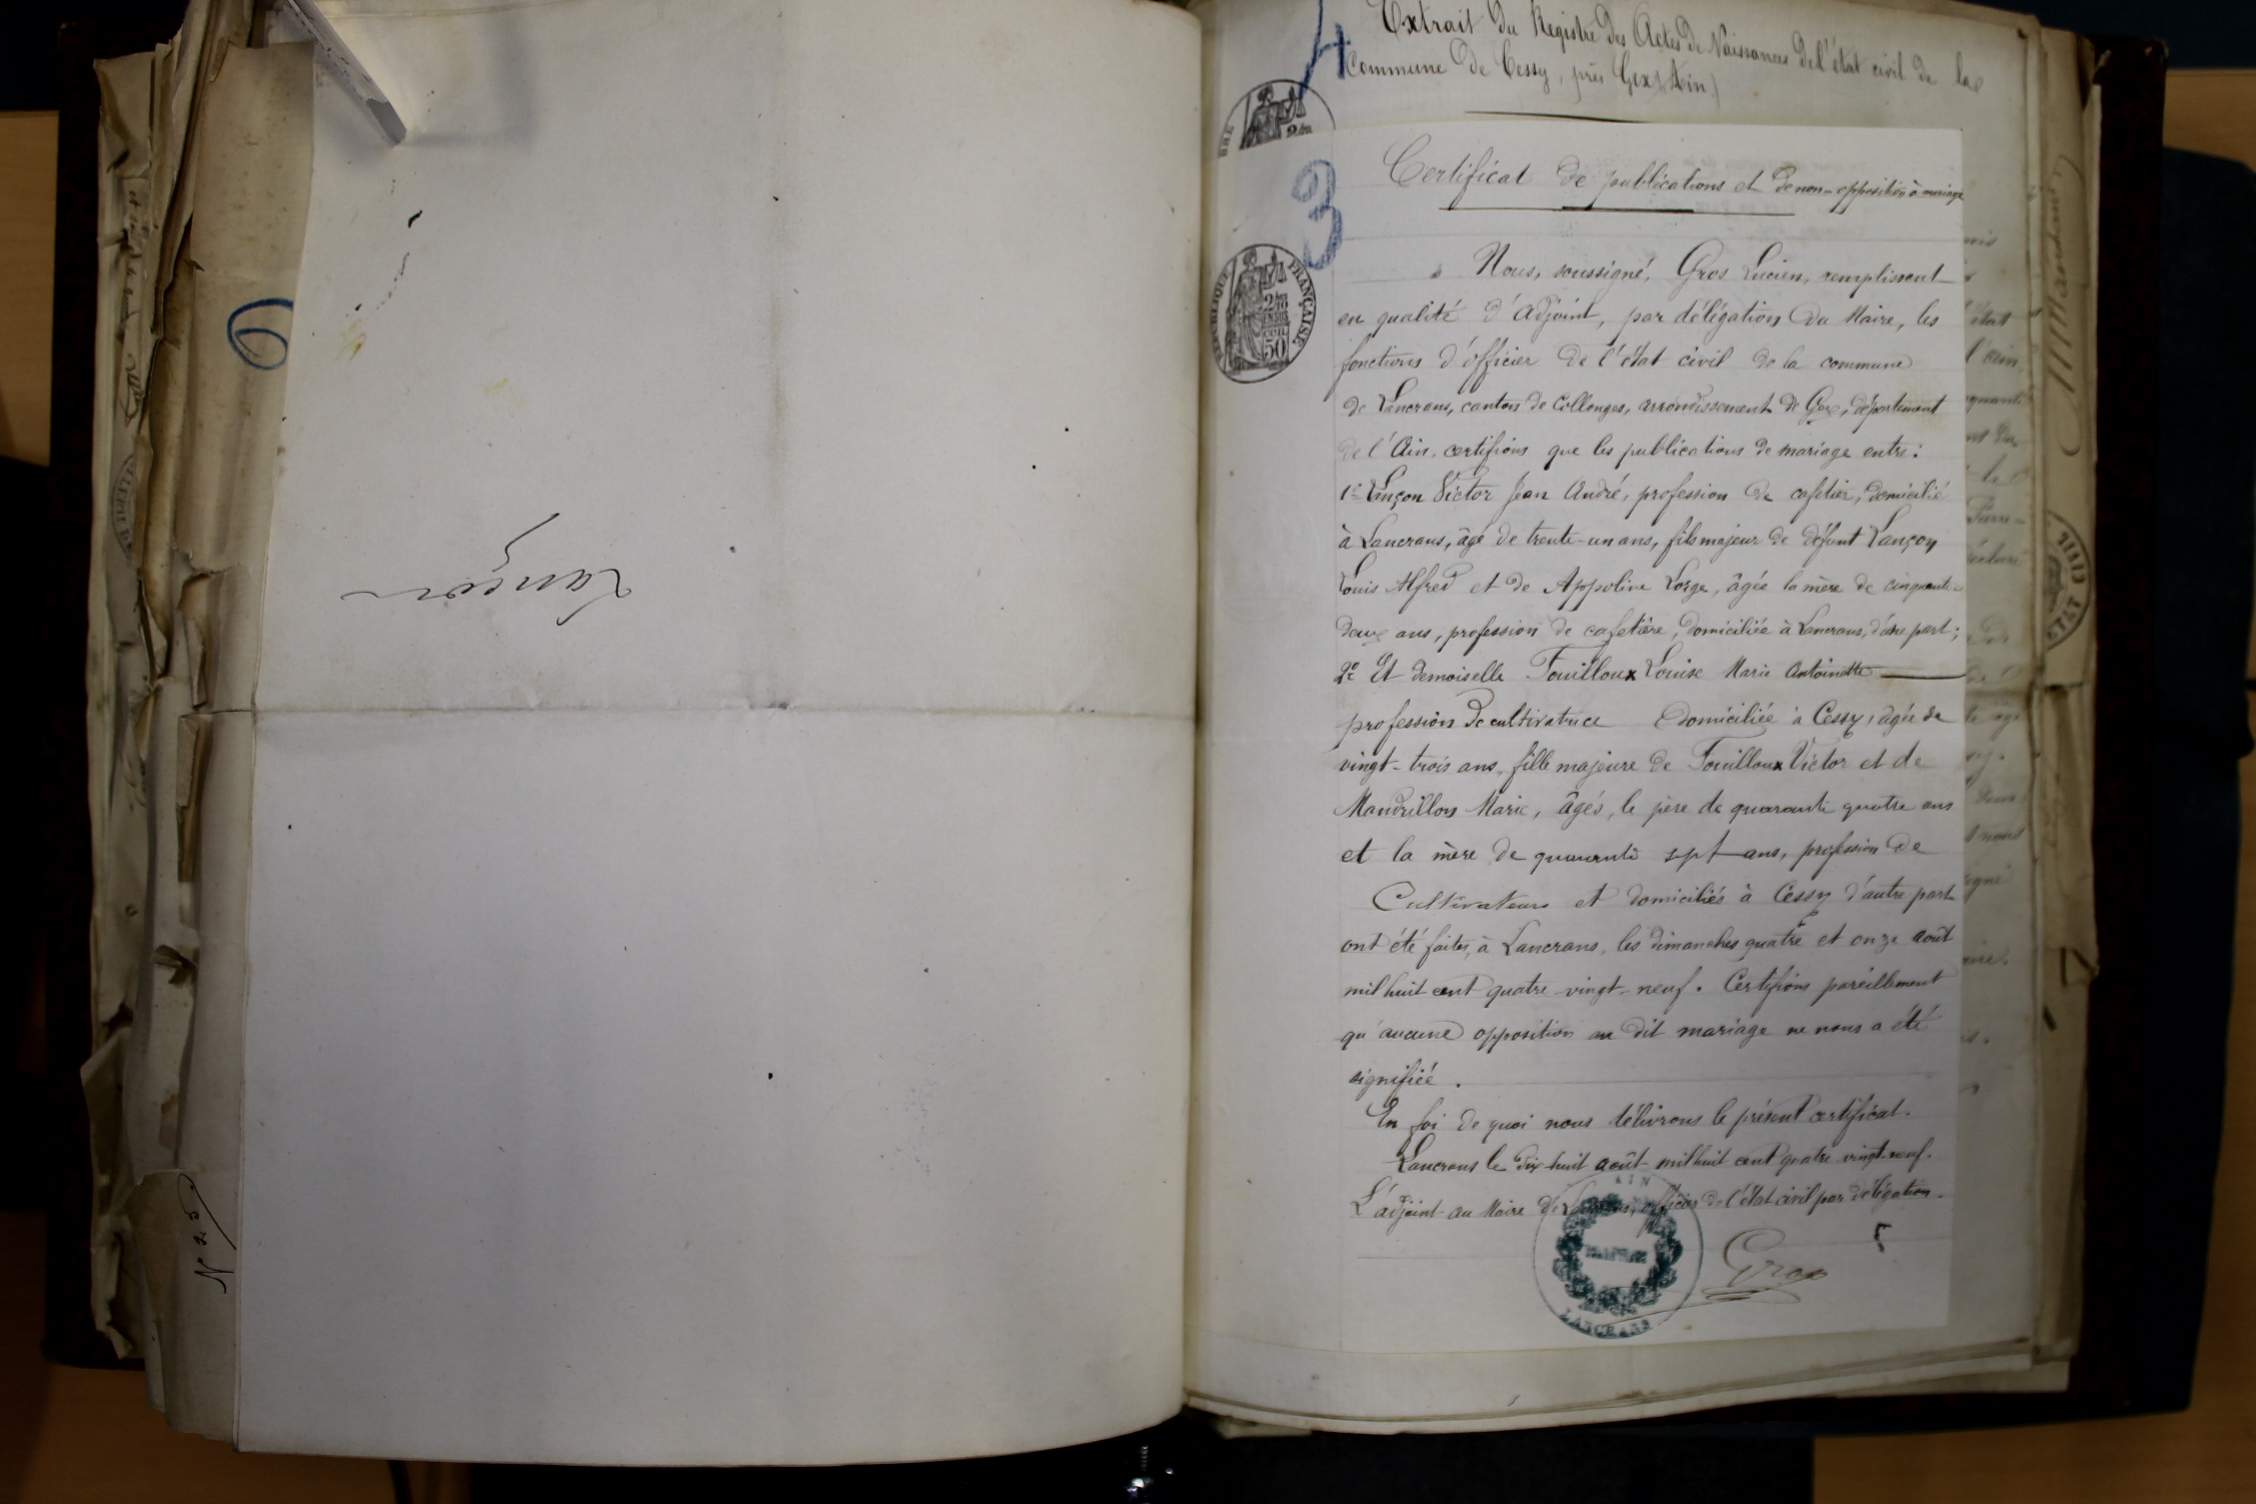 Lançon
6
N 25
4
Extrait du Registre des Actes de Naissances de l'état civil de la
Commune de Cessy, près Gex (Ain)
3
RÉPUBLIQUE FRANÇAISE
50
Certificat de publications et de non-opposition à mariage
Nous, soussigné, Gros Lucien, remplissant
en qualité d'Adjoint, par délégation du Maire, les
fonctions d'officier de l'état civil de la commune
de Lancrans, canton de Collonges, arrondissement de Gex, département
de l'Ain, certifions que les publications de mariage entre:
1º Lançon Victor Jean André, profession de cafetier, domicilié
à Lancrans, âgé de trente-un ans, fils majeur de défunt Lançon
Louis Alfred et de Appoline Lorge, âgée la mère de cinquante-
deux ans, profession de cafetière, domiciliée à Lancrans, d'une part;
2º Et demoiselle Fouilloux Louise Marie Antoinette
profession de cultivatrice domiciliée à Cessy, âgée de
vingt-trois ans, fille majeure de Fouilloux Victor et de
Mandrillon Marie, âgés, le père de quarante quatre ans
et la mère de quarante sept ans, profession de
Cultivateurs et domiciliés à Cessy d'autre part
ont été faites, à Lancrans, les dimanches quatre et onze août
mil huit cent quatre-vingt-neuf. Certifions pareillement
qu'aucune opposition au dit mariage ne nous a été
signifiée.
En foi de quoi nous délivrons le présent certificat.
Lancrans le dix-huit août mil huit cent quatre vingt-neuf.
L'adjoint au Maire de Lancrans, officier de l'état civil par délégation.
Gros
AIN
LANCRANS